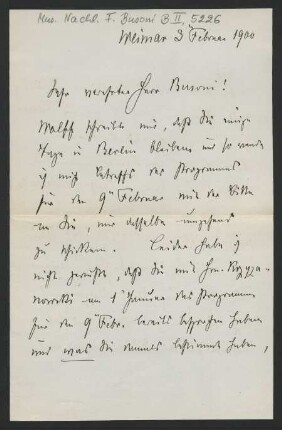 Mus. Nachl. F. Busoni B II, 5226
Weimar 3ᵗ Februar 1900
Sehr verehrter Herr Busoni!
Wolff schreibt mir, daß Sie einige
Tage in Berlin bleiben und so wende
ich mich betreffs des Programms
für den 9ᵗ Februar mit der Bitte
an Sie, mir dasselbe umgehend
zu schicken. Leider habe ich
nicht gewußt, daß Sie mit Hrn. Kryza-
nowski am 1ᵗ Januar das Programm
für den 9ᵗ Febr. bereits besprochen haben
und was Sie damals bestimmt haben,